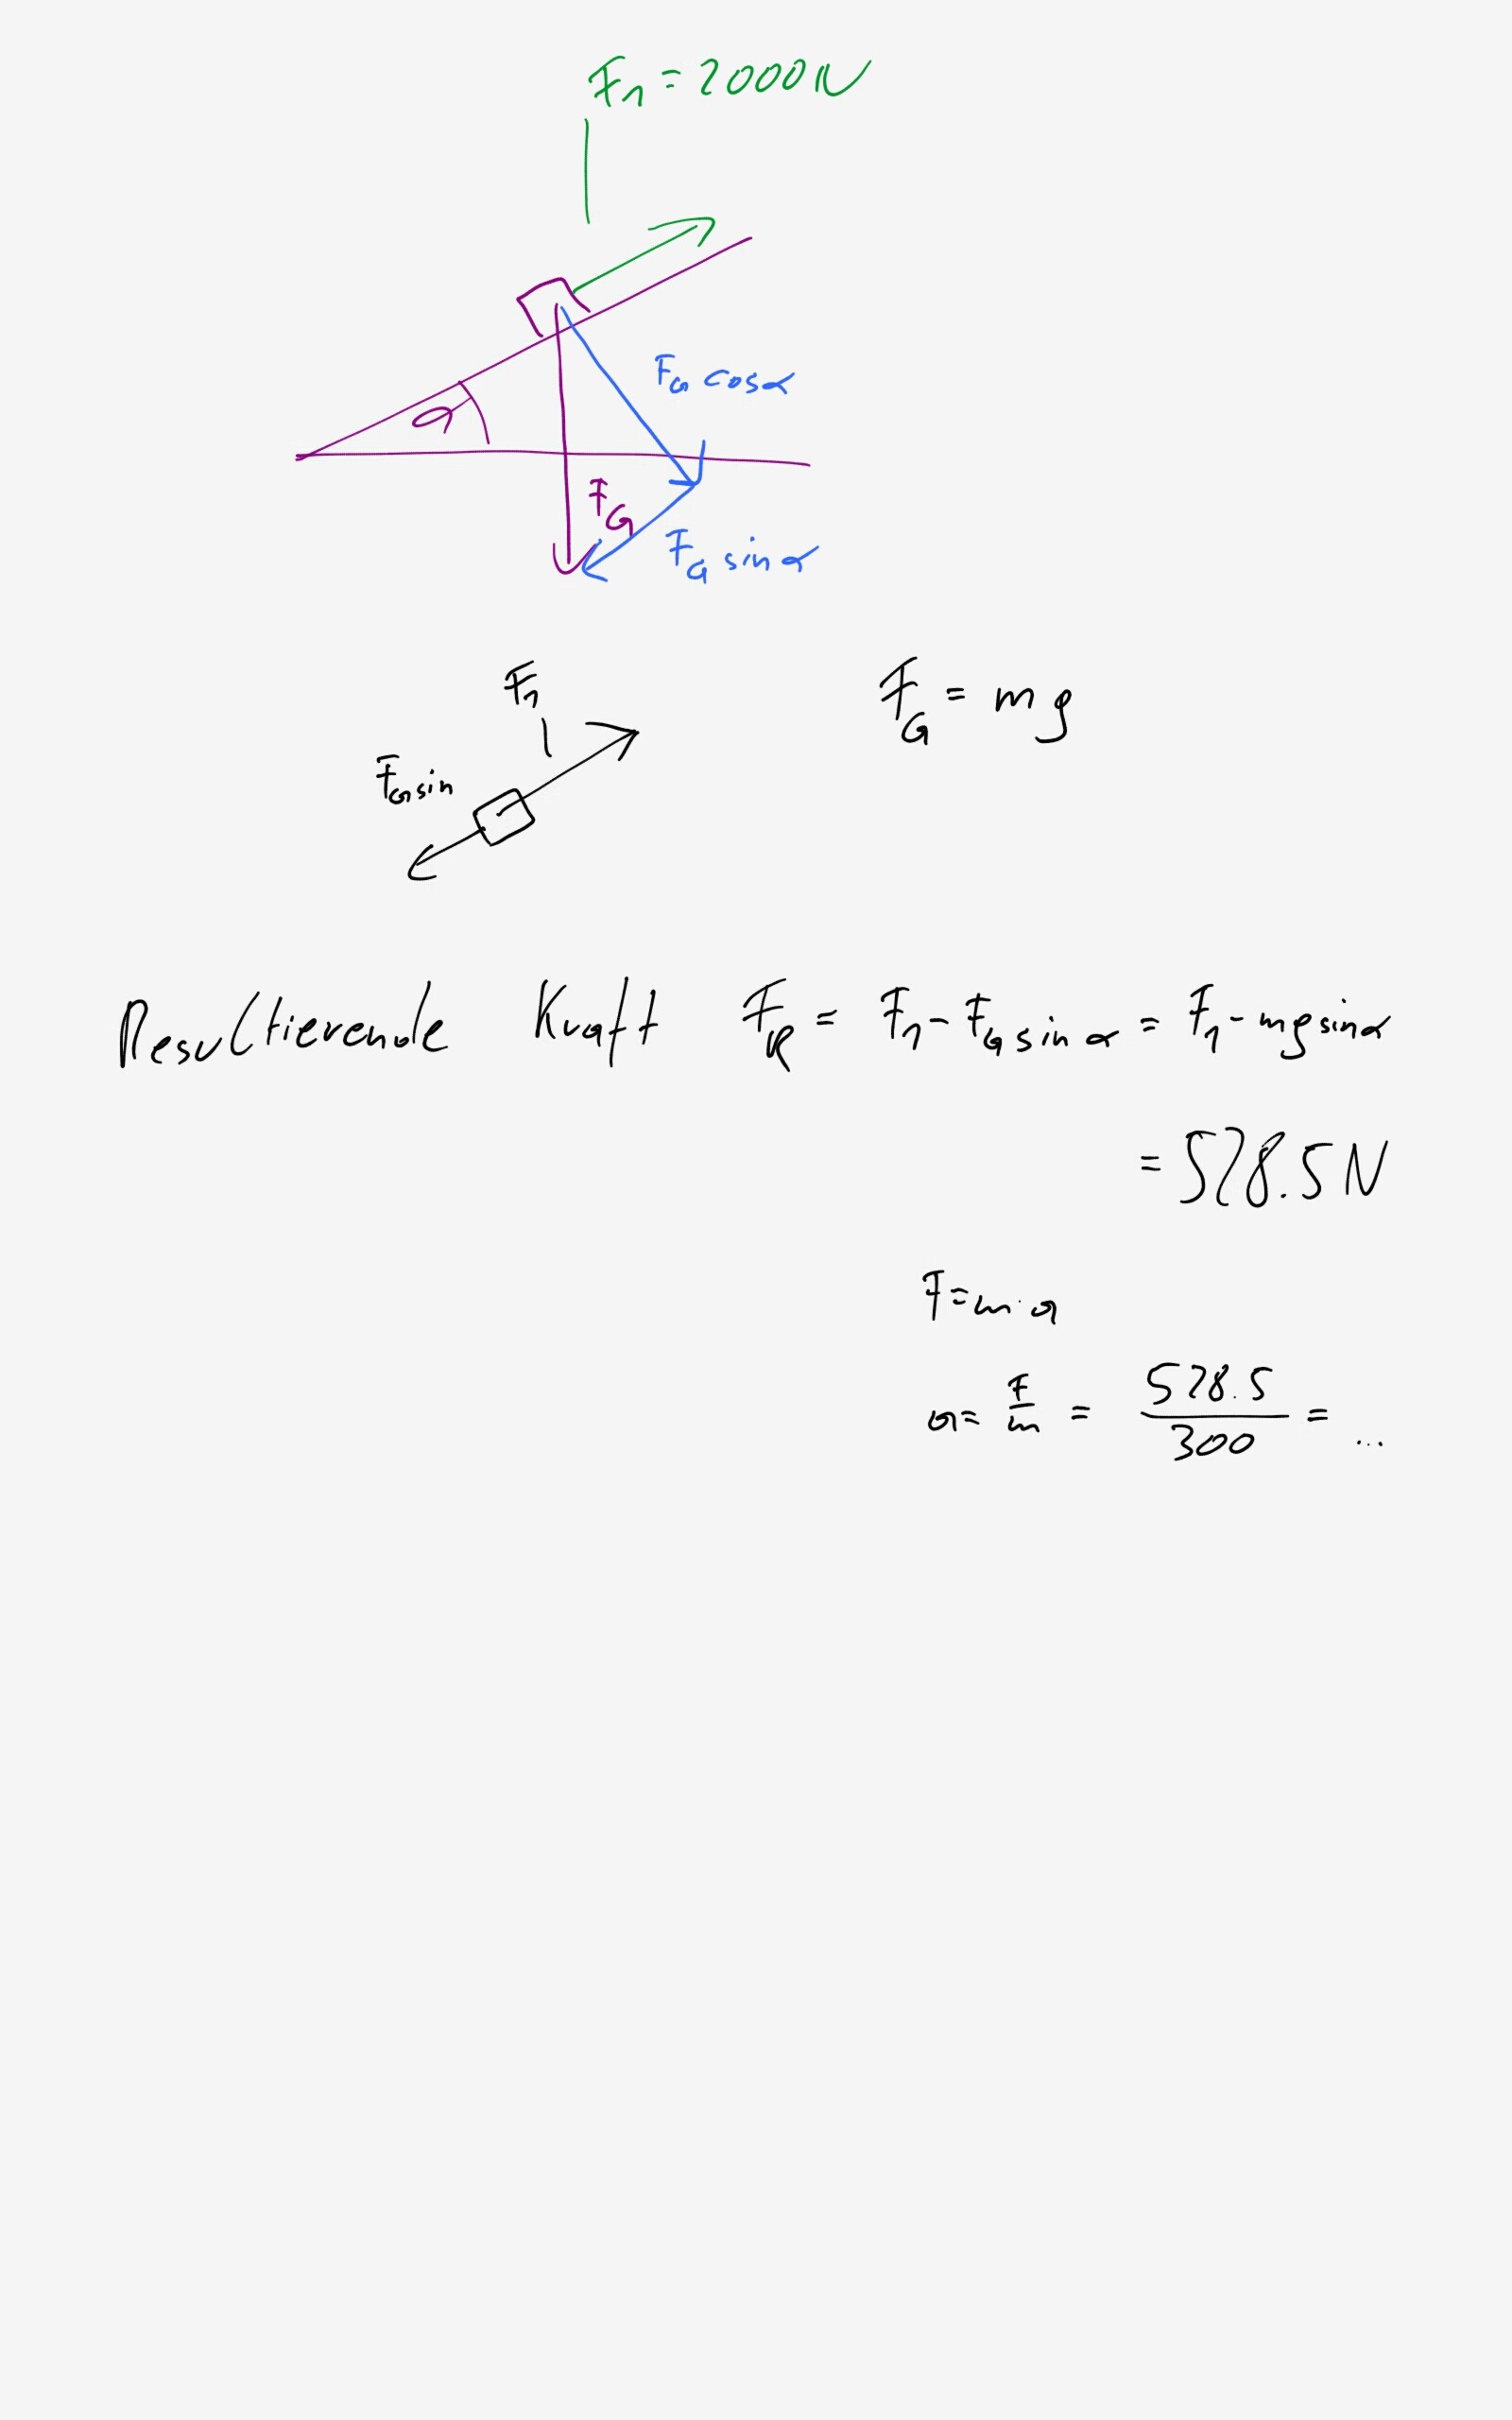 F₁ = 2000N
F_G cos α
α
F_G
F_G sin α
F₁
F_G = mg
F_G sin
Resultierende Kraft F_R = F₁ - F_G sin α = F₁ - mg sin α
= 528.5 N
F = m · a
a = F/m = 528.5/300 = ...